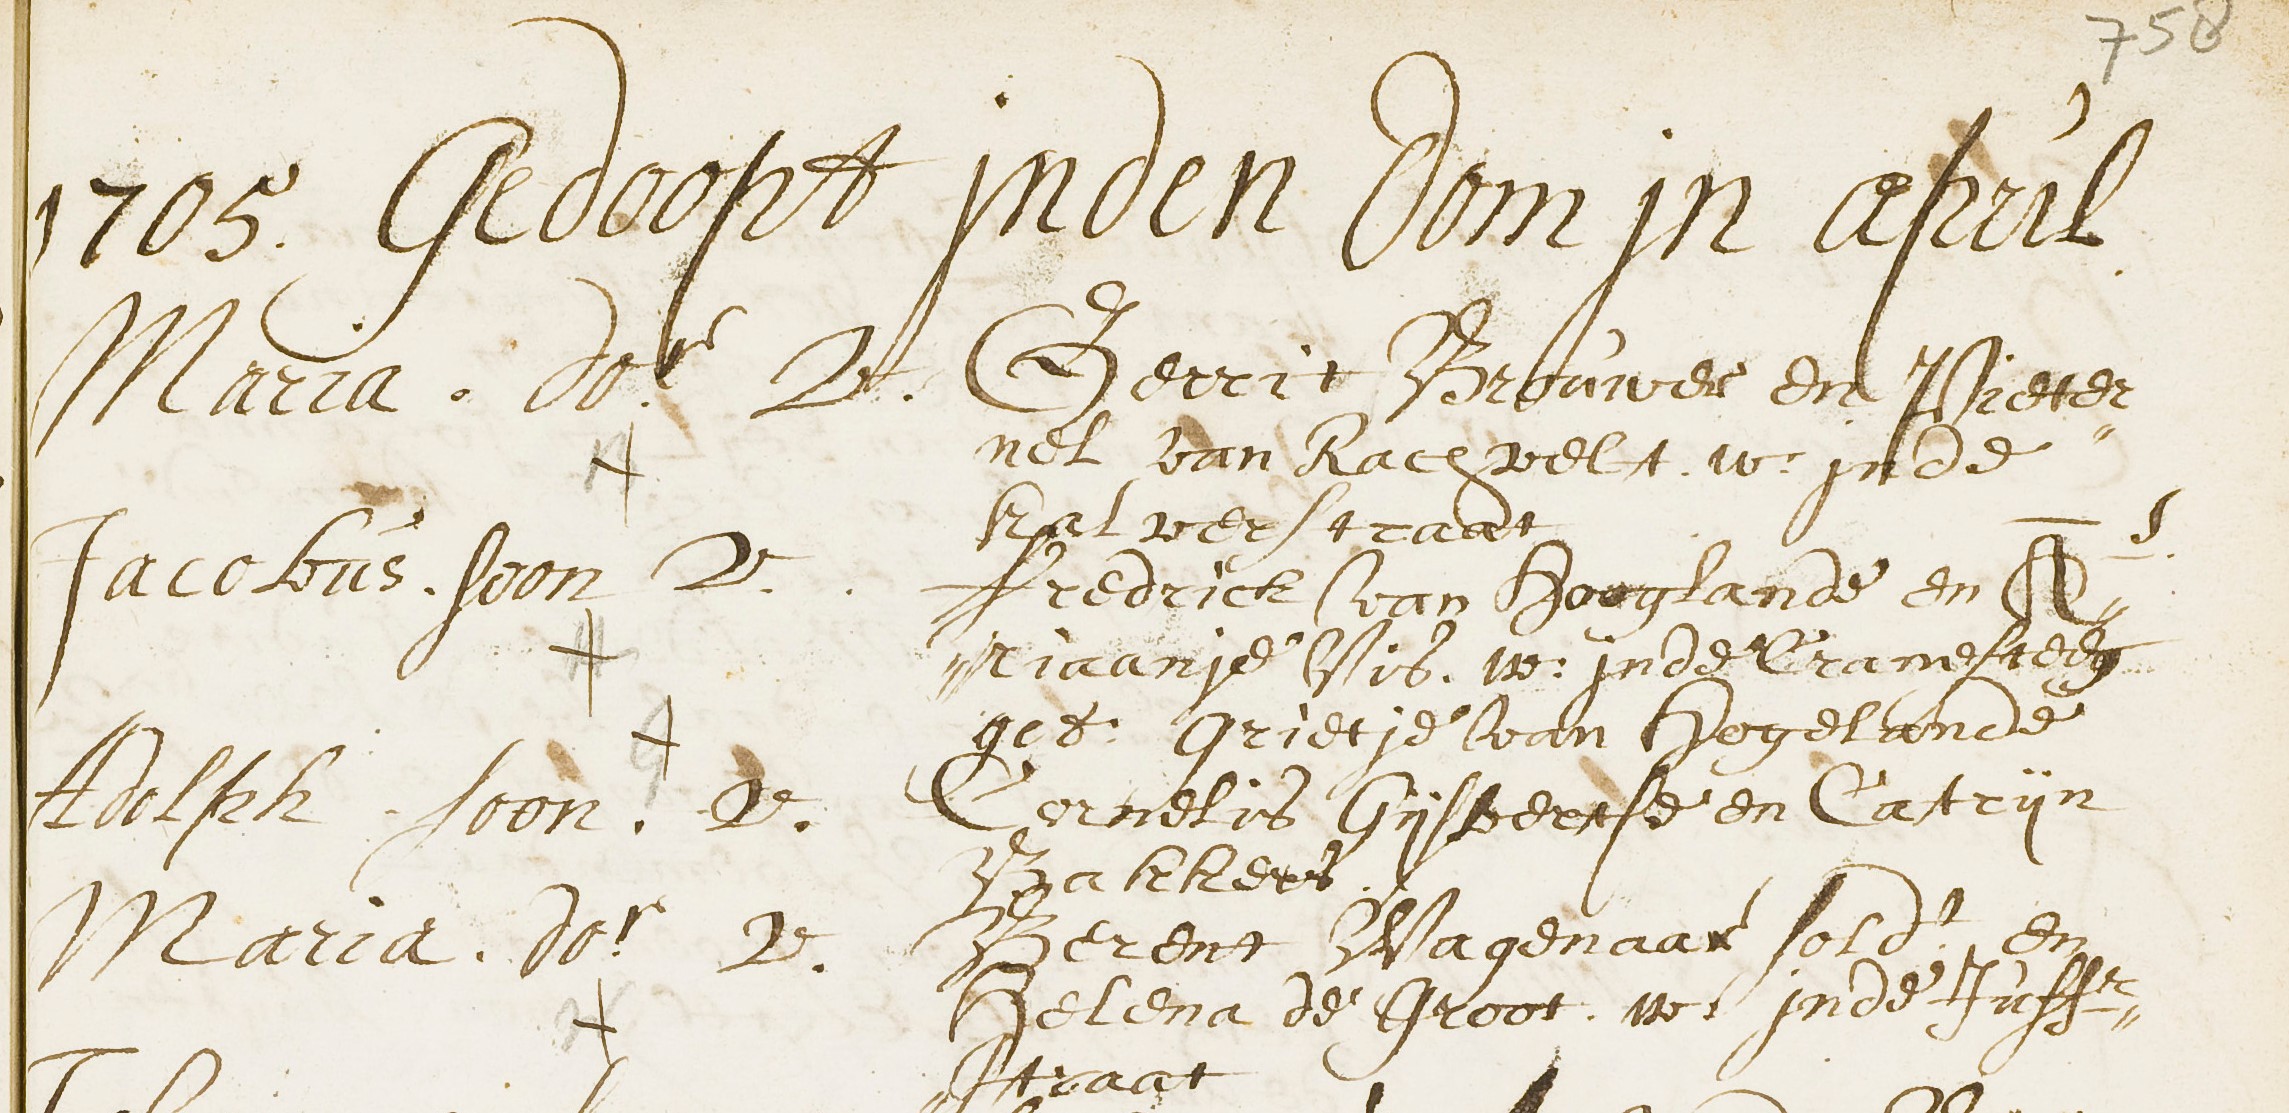 758
1705. Gedoopt jnden Dom jn april
Maria. dor V. Gerrit Brouwer en Pieter„
nel van Raesvelt. w: jnde
kalverstraat
Jacobus. soon V. fredrick van Hooglande en A„
„riaanje Vis. w: jnde Cramesteeg
get: grietje van Hogelande
Adolph soon. V. Cornelis Gijsbertse en Catrijn
Bakkers
Maria. dor V. Berent Wagenaar sold.t en
Helena de Groot. w: jnde Juffr„
„straat